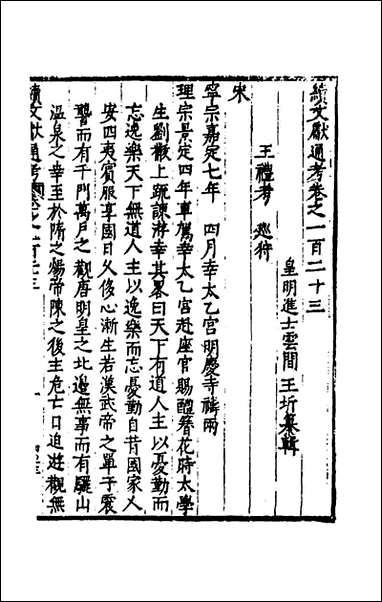 續文獻通考卷之一百二十三
皇明進士雲間王圻纂輯
王禮考 巡狩
宋
寧宗嘉定七年 四月幸太乙宮明慶寺禱雨
理宗景定四年車駕幸太乙宮赴座官賜醴簪花時太學
生劉黻上疏諫游幸其畧曰天下有道人主以憂勤而
忘逸樂天下無道人主以逸樂而忘憂勤自昔國家乂
安四夷賓服享國日久侈心漸生若漢武帝之單于震
讋而有千門萬戶之觀唐明皇之北邊無事而有驪山
溫泉之幸至於隋之煬帝陳之後主危亡日迫遊觀無
續文獻通考 卷之一百二十三 一